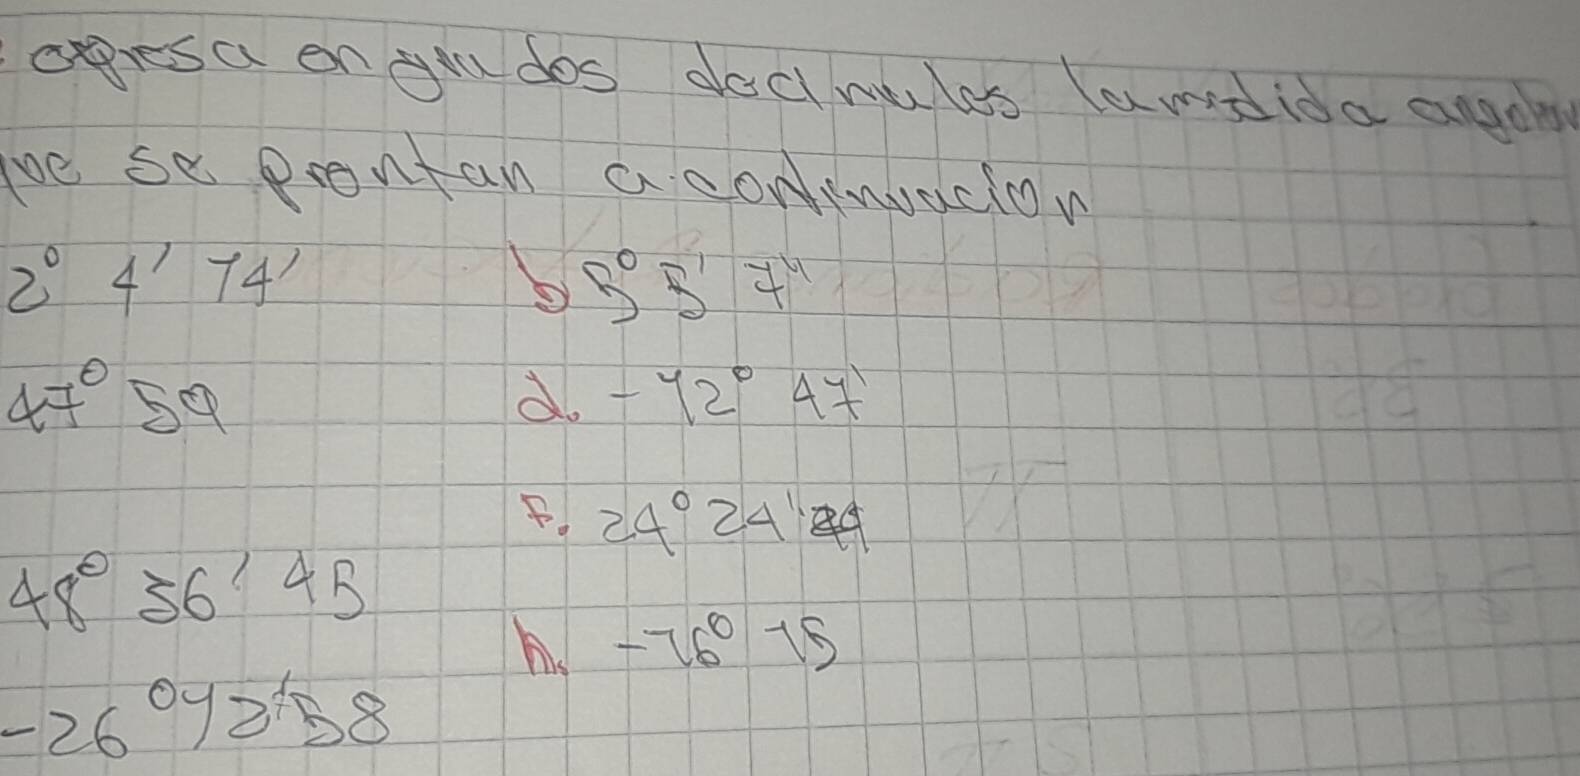 expresa en grados decimales la medida angolar
que se prentan a continuacion
2° 4' 14' b 5° 5' 7"
47° 59 d. -12° 47'
F. 24° 24'
48° 36' 45
h. -16° 15
-26° 42' 58